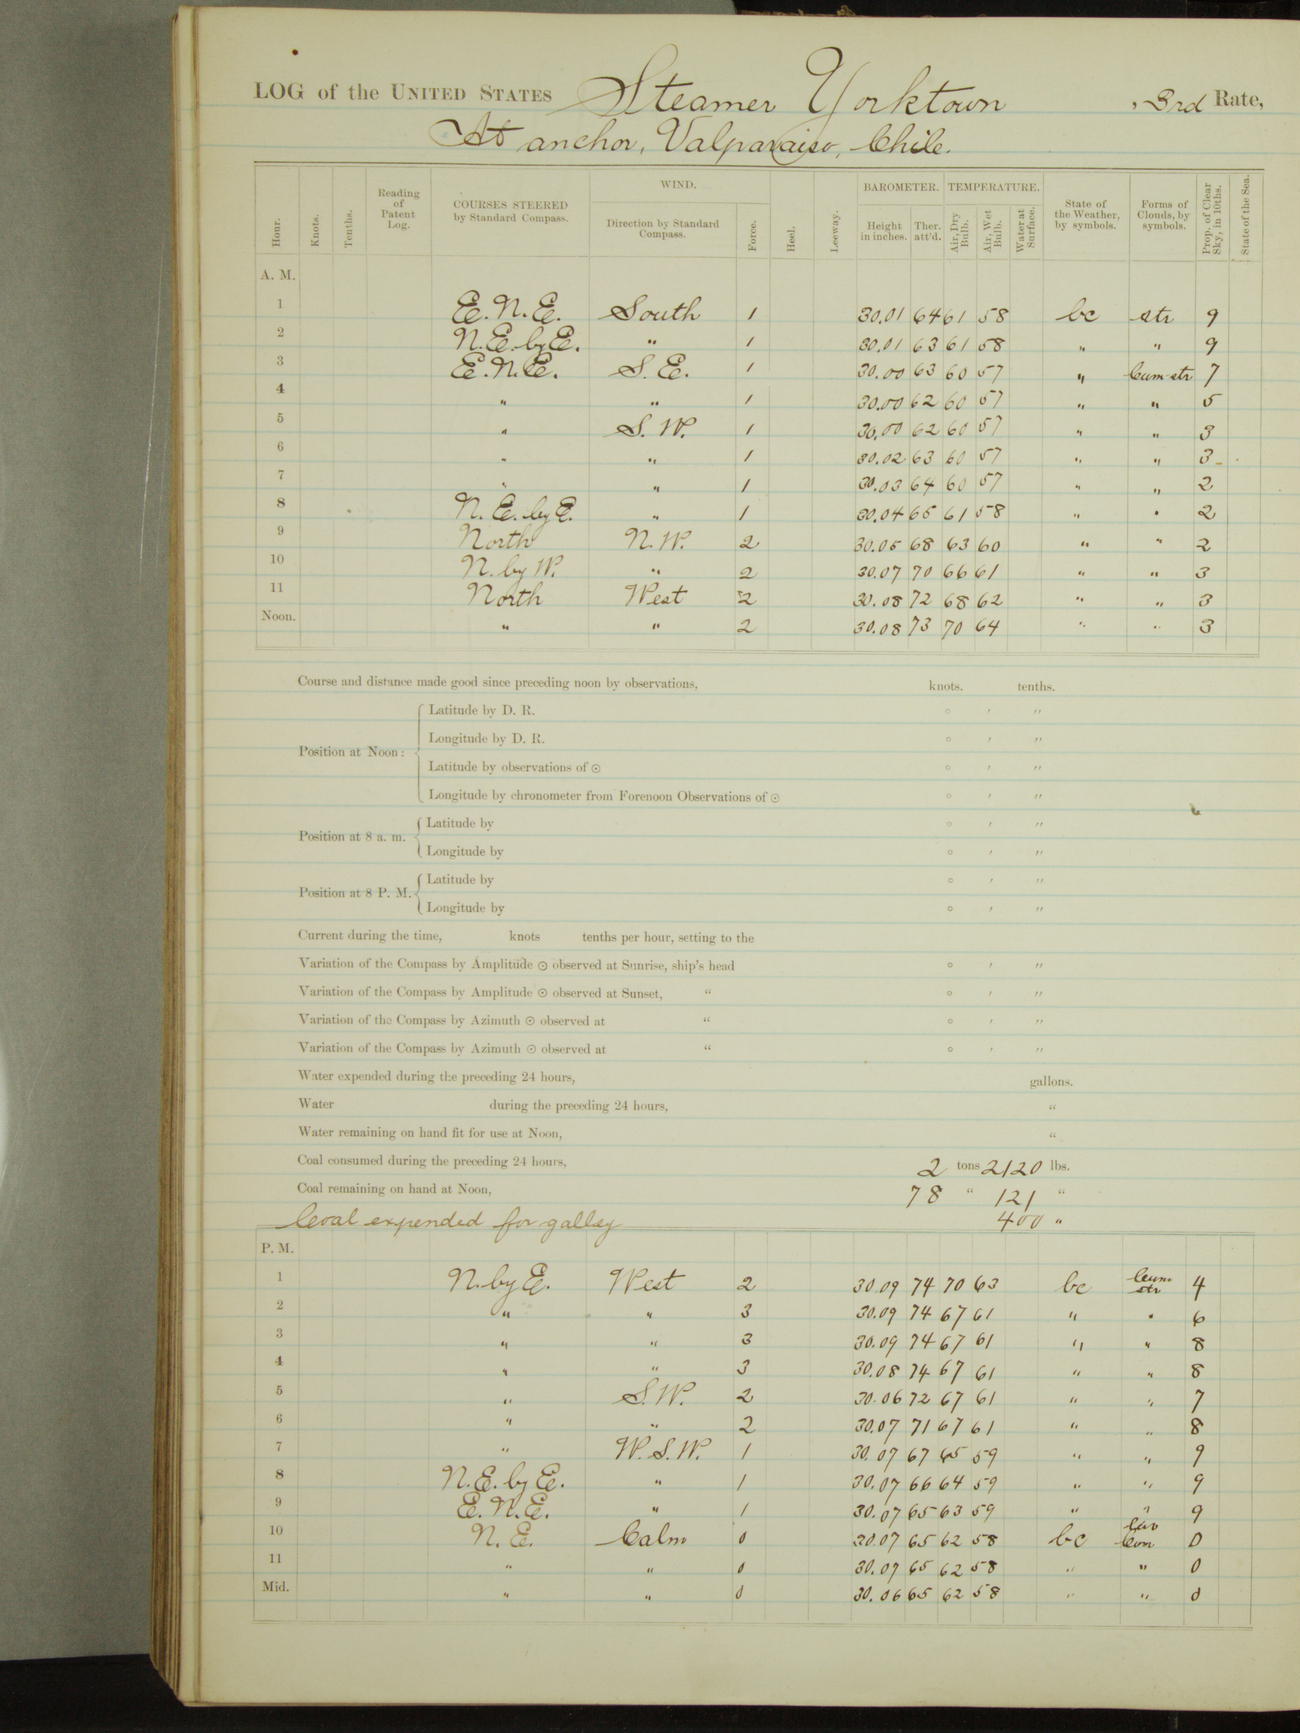 LOG of the UNITED STATES Steamer Yorktown, 3rd Rate,
At anchor, Valparaiso, Chile.
Hour. Knots. Tenths. Reading of Patent Log. COURSES STEERED by Standard Compass. WIND. Direction by Standard Compass. Force. Heel. Leeway. BAROMETER. Height in inches. Ther. att'd. TEMPERATURE. Air, Dry Bulb. Air, Wet Bulb. Water at Surface. State of the Weather, by symbols. Forms of Clouds, by symbols. Prop. of Clear Sky, in 10ths. State of the Sea.
A. M.
1 E. N. E. South 1 30.01 64 61 58 bc str 9
2 N. E. by E. " 1 30.01 63 61 58 " " 9
3 E. N. E. S. E. 1 30.00 63 60 57 " Cum-str 7
4 " " 1 30.00 62 60 57 " " 5
5 " S. W. 1 30.00 62 60 57 " " 3
6 " " 1 30.02 63 60 57 " " 3
7 " " 1 30.03 64 60 57 " " 2
8 N. E. by E. " 1 30.04 65 61 58 " " 2
9 North N. W. 2 30.05 68 63 60 " " 2
10 N. by W. " 2 30.07 70 66 61 " " 3
11 North West 2 30.08 72 68 62 " " 3
Noon. " " 2 30.08 73 70 64 " " 3
Course and distance made good since preceding noon by observations, knots. tenths.
Position at Noon: Latitude by D. R. ° ′ ″
Longitude by D. R. ° ′ ″
Latitude by observations of ☉ ° ′ ″
Longitude by chronometer from Forenoon Observations of ☉ ° ′ ″
Position at 8 a. m. Latitude by ° ′ ″
Longitude by ° ′ ″
Position at 8 P. M. Latitude by ° ′ ″
Longitude by ° ′ ″
Current during the time, knots tenths per hour, setting to the
Variation of the Compass by Amplitude ☉ observed at Sunrise, ship's head ° ′ ″
Variation of the Compass by Amplitude ☉ observed at Sunset, " ° ′ ″
Variation of the Compass by Azimuth ☉ observed at " ° ′ ″
Variation of the Compass by Azimuth ☉ observed at " ° ′ ″
Water expended during the preceding 24 hours, gallons.
Water during the preceding 24 hours, "
Water remaining on hand fit for use at Noon, "
Coal consumed during the preceding 24 hours, 2 tons 2120 lbs.
Coal remaining on hand at Noon, 78 " 121 "
Coal expended for galley 400 "
P. M.
1 N. by E. West 2 30.09 74 70 63 bc Cum str 4
2 " " 3 30.09 74 67 61 " " 6
3 " " 3 30.09 74 67 61 " " 8
4 " " 3 30.08 74 67 61 " " 8
5 " S. W. 2 30.06 72 67 61 " " 7
6 " " 2 30.07 71 67 61 " " 8
7 " W. S. W. 1 30.07 67 65 59 " " 9
8 N. E. by E. " 1 30.07 66 64 59 " " 9
9 E. N. E. " 1 30.07 65 63 59 " " 9
10 N. E. Calm 0 30.07 65 62 58 bc 0
11 " " 0 30.07 65 62 58 " " 0
Mid. " " 0 30.06 65 62 58 " " 0